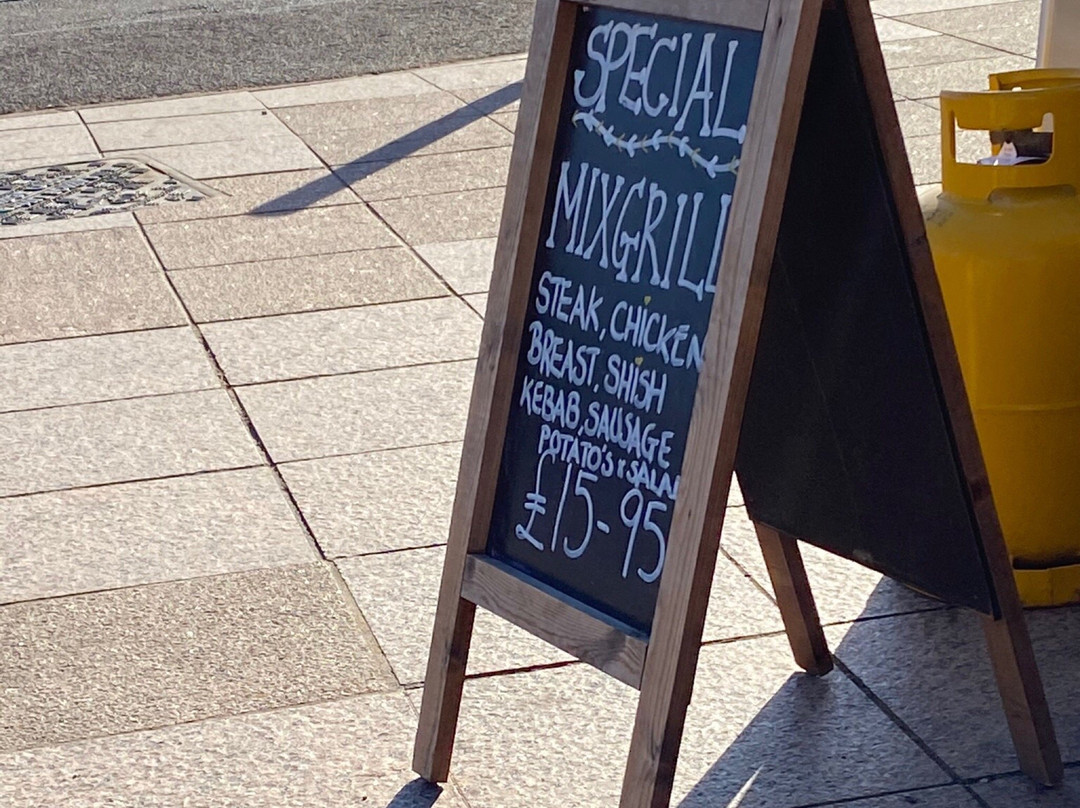 SPECIAL
MIXGRILL
STEAK, CHICKEN
BREAST, SHISH
KEBAB, SAUSAGE
POTATO'S & SALAD
£15-95